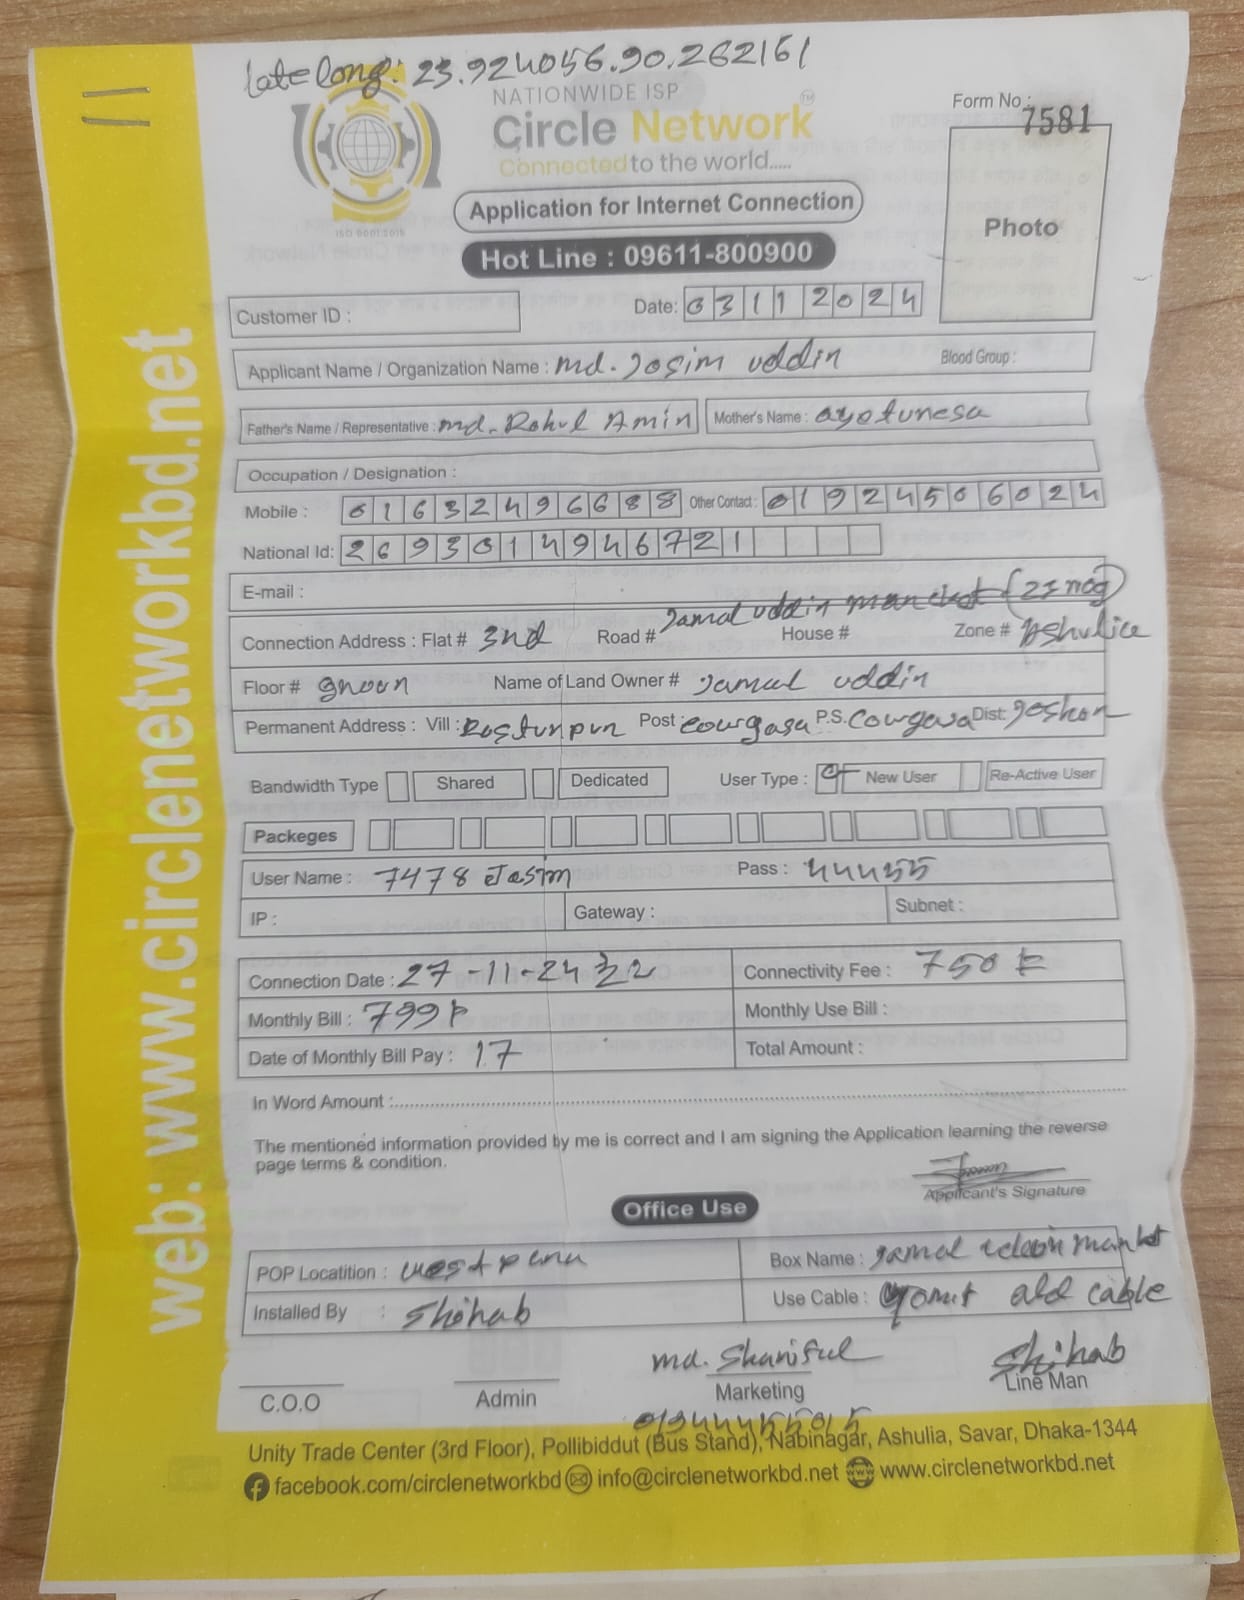 Late long: 23.924056.90.262161
NATIONWIDE ISP
Circle Network™
Connected to the world.....
ISO 9001:2015
Form No.: 7581
Photo
Application for Internet Connection
Hot Line : 09611-800900
Customer ID :
Date: 03112024
Applicant Name / Organization Name : md. Josim uddin Blood Group :
Father's Name / Representative : md. Rohul Amin Mother's Name : ayotunesa
Occupation / Designation :
Mobile : 01632496688 Other Contact : 01924506024
National Id: 2693014946721
E-mail :
Jamal uddin market
Connection Address : Flat # 3nd Road # House # Zone # Ashulia
Floor # groun Name of Land Owner # Jamal uddin
Permanent Address : Vill : Rostunpur Post : courgasa P.S. Courgasa Dist: Joshor
Bandwidth Type Shared Dedicated User Type : New User Re-Active User
Packeges
User Name : 7478 Jasim Pass : 444555
IP : Gateway : Subnet :
Connection Date : 27-11-24 Connectivity Fee : 750
Monthly Bill : 799 Monthly Use Bill :
Date of Monthly Bill Pay : 17 Total Amount :
In Word Amount :
The mentioned information provided by me is correct and I am signing the Application learning the reverse
page terms & condition.
Applicant's Signature
Office Use
POP Locatition : west para Box Name : Jamal uddin market
Installed By : Shihab Use Cable : old cable
md. Shariful Shihab
C.O.O Admin Marketing Line Man
Unity Trade Center (3rd Floor), Pollibiddut (Bus Stand), Nabinagar, Ashulia, Savar, Dhaka-1344
facebook.com/circlenetworkbd info@circlenetworkbd.net www.circlenetworkbd.net
web: www.circlenetworkbd.net